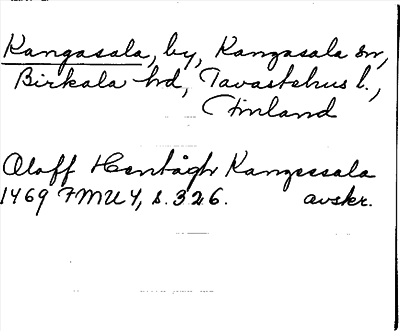 Kangasala, by, Kangasala sn,
Birkala hd, Tavastehus l.,
Finland
Oloff Hentågh Kangessala
1469 FMU 4, s. 326. avskr.